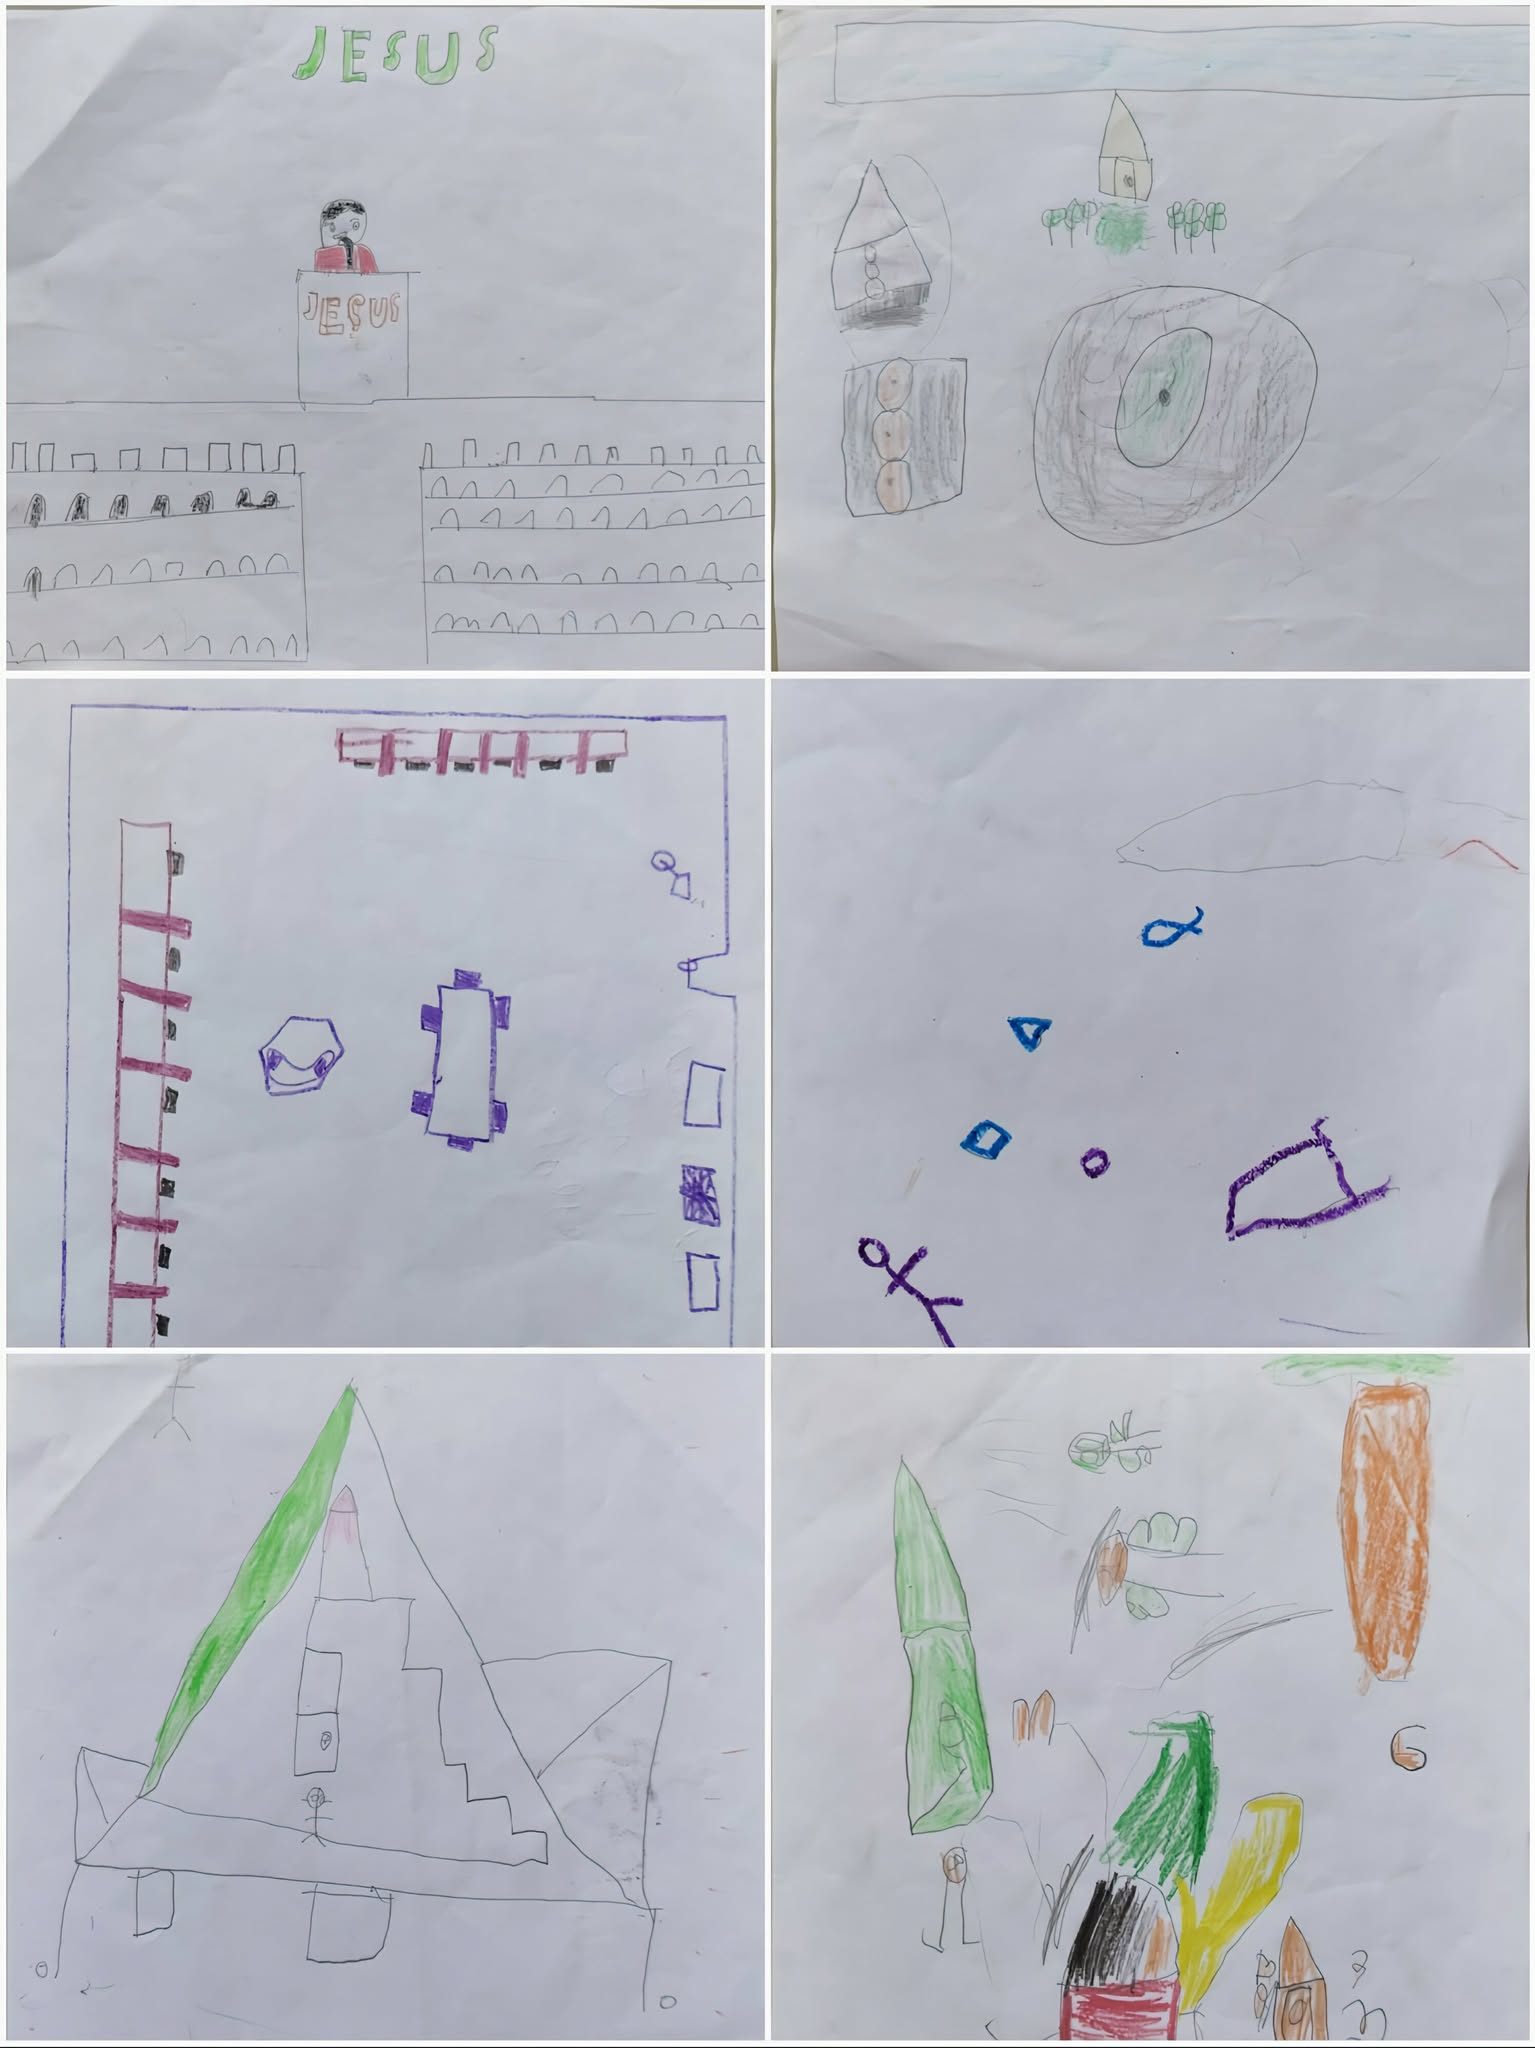 JESUS
JESUS